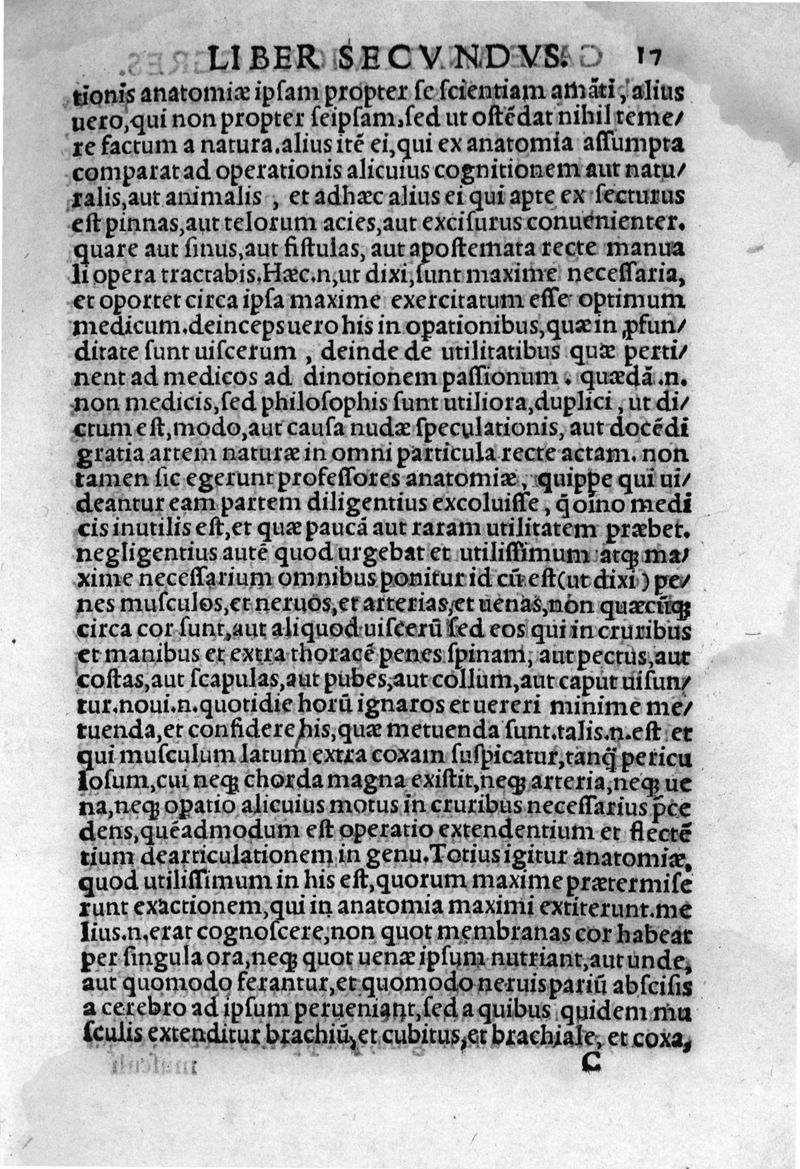 LIBER SECVNDVS. 17
tionis anatomiæ ipſam propter ſe ſcientiam amāti, alius
uero, qui non propter ſeipſam, ſed ut oſtēdat nihil teme/
re factum a natura. alius itē ei, qui ex anatomia aſſumpta
comparat ad operationis alicuius cognitionem aut natu/
ralis, aut animalis, et adhæc alius ei qui apte ex ſecturus
eſt pinnas, aut telorum acies, aut exciſurus conuenienter.
quare aut ſinus, aut fiſtulas, aut apoſtemata recte manua
li opera tractabis. Hæc.n, ut dixi, ſunt maxime neceſſaria,
et oportet circa ipſa maxime exercitatum eſſe optimum
medicum. deinceps uero his in opationibus, quæ in ꝓfun/
ditate ſunt uiſcerum, deinde de utilitatibus quæ perti/
nent ad medicos ad dinotionem paſſionum. quædā.n.
non medicis, ſed philoſophis ſunt utiliora, duplici, ut di/
ctum eſt, modo, aut cauſa nudæ ſpeculationis, aut docēdi
gratia artem naturæ in omni particula recte actam. non
tamen ſic egerunt profeſſores anatomiæ, quippe qui ui/
deantur eam partem diligentius excoluiſſe, q̄ oīno medi
cis inutilis eſt, et quæ paucā aut raram utilitatem præbet.
negligentius autē quod urgebat et utiliſſimum atqꝫ ma/
xime neceſſarium omnibus ponitur id cū eſt (ut dixi) pe/
nes muſculos, et neruos, et arterias, et uenas, non quæcūqꝫ
circa cor ſunt, aut aliquod uiſcerū ſed eos qui in cruribus
et manibus et extra thoracē penes ſpinam, aut pectus, aut
coſtas, aut ſcapulas, aut pubes, aut collum, aut caput uiſun/
tur. noui.n. quotidie horū ignaros et uereri minime me/
tuenda, et confidere his, quæ metuenda ſunt. talis.n. eſt et
qui muſculum latum extra coxam ſuſpicatur, tanq̄ pericu
loſum, cui neqꝫ chorda magna exiſtit, neqꝫ arteria, neqꝫ ue
na, neqꝫ opatio alicuius motus in cruribus neceſſarius p̄ce
dens, quēadmodum eſt operatio extendentium et flectē
tium dearticulationem in genu. Totius igitur anatomiæ,
quod utiliſſimum in his eſt, quorum maxime prætermiſe
runt exactionem, qui in anatomia maximi extiterunt. me
lius.n. erat cognoſcere, non quot membranas cor habeat
per ſingula ora, neqꝫ quot uenæ ipſum nutriant, aut unde,
aut quomodo ferantur, et quomodo neruis pariū abſciſis
a cerebro ad ipſum perueniant, ſed a quibus quidem mu
ſculis extenditur brachiū, et cubitus, et brachiale, et coxa,
C